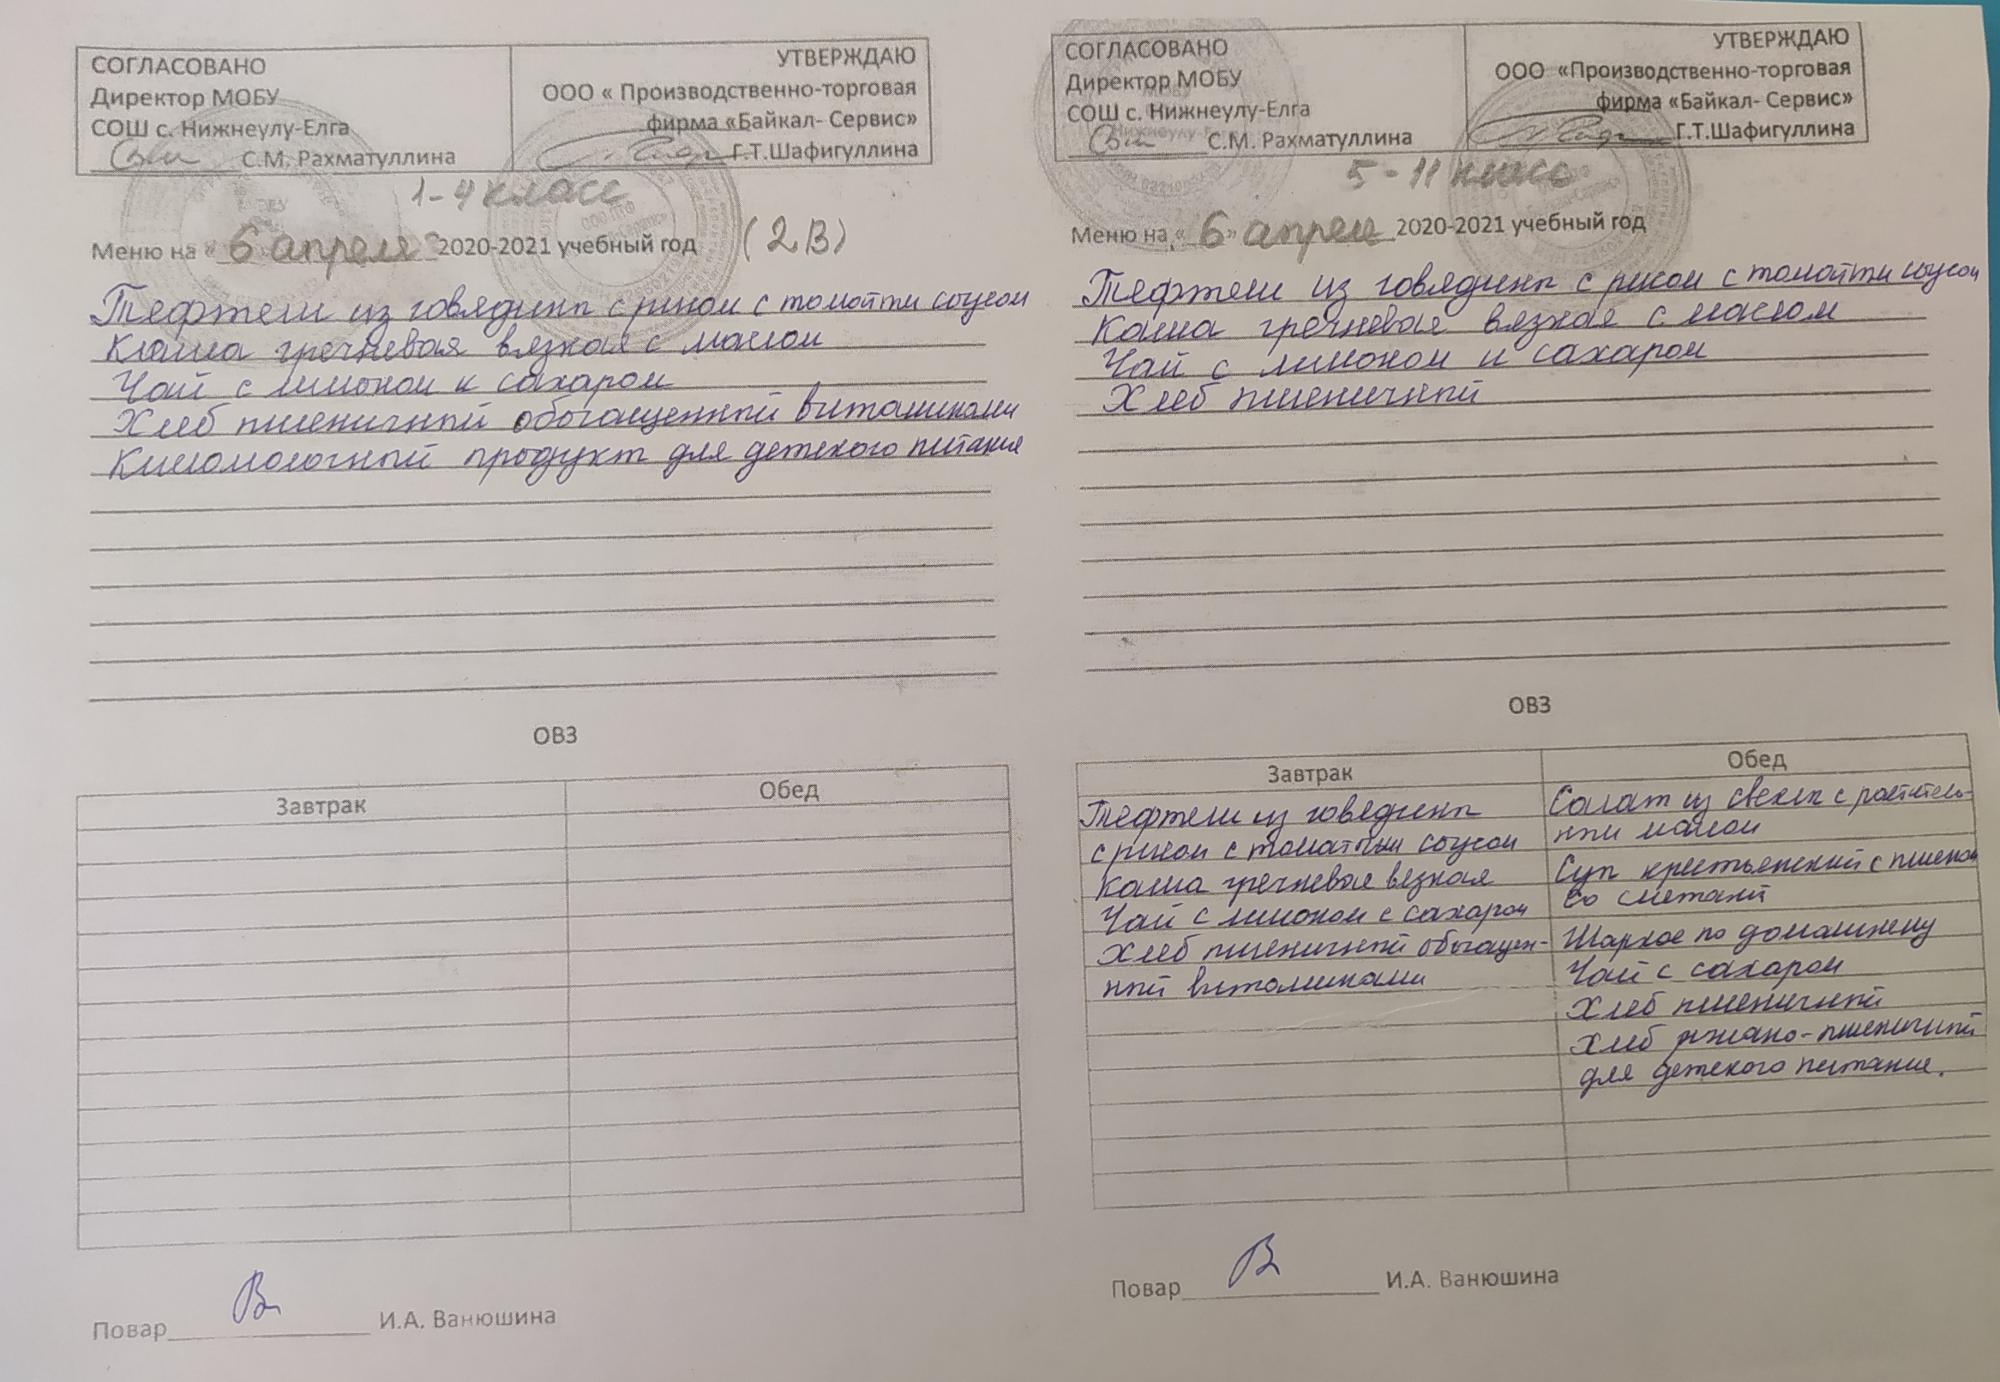 СОГЛАСОВАНО
Директор МОБУ
СОШ с. Нижнеулу-Елга
С.М. Рахматуллина
УТВЕРЖДАЮ
ООО « Производственно-торговая
фирма «Байкал- Сервис»
Г.Т.Шафигуллина
1-4 класс
Меню на « 6 апреля » 2020-2021 учебный год (2В)
Тефтели из говядины с рисом с томатны соусом
Каша гречневая вязкая с маслом
Чай с лимоном и сахаром
Хлеб пшеничный обогащенный витаминами
Кисломолочный продукт для детского питания
ОВЗ
Завтрак
Обед
Повар И.А. Ванюшина
СОГЛАСОВАНО
Директор МОБУ
СОШ с. Нижнеулу-Елга
С.М. Рахматуллина
УТВЕРЖДАЮ
ООО «Производственно-торговая
фирма «Байкал- Сервис»
Г.Т.Шафигуллина
5-11 класс
Меню на « 6» апреля 2020-2021 учебный год
Тефтели из говядины с рисом с томатны соусом
Каша гречневая вязкая с маслом
Чай с лимоном и сахаром
Хлеб пшеничный
ОВЗ
Завтрак
Тефтели из говядины
с рисом с томатным соусом
Каша гречневая вязкая
Чай с лимоном с сахаром
Хлеб пшеничный обогащен-
ный витаминами
Обед
Салат из свеклы с раститель-
ным маслом
Суп крестьянский с пшеном
со сметаной
Жаркое по домашнему
Чай с сахаром
Хлеб пшеничный
Хлеб ржано-пшеничный
для детского питания.
Повар И.А. Ванюшина